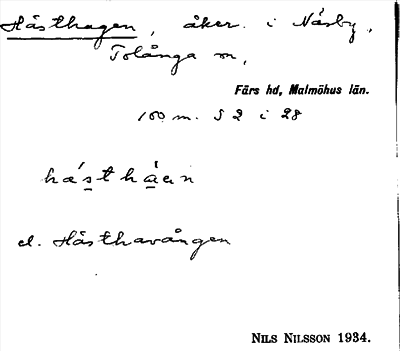 Hästhagen, åker. i Näsby,
Tolånga sn,
Färs hd, Malmöhus län.
100 m. S 2 i 28
hæ´sthàɹn
el. Hästhavången
NILS NILSSON 1934.